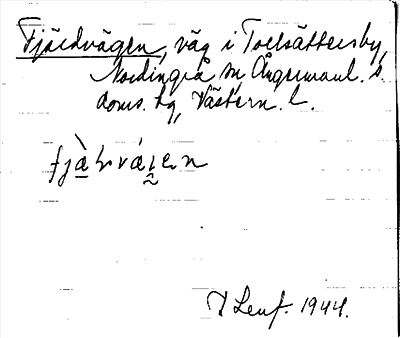 Fjärdvägen, väg i Torsättersby,
Nordingrå sn, Ångermanl. s.
doms. hg, Västern. l.
fjàḷvágen
T Lenf. 1944.